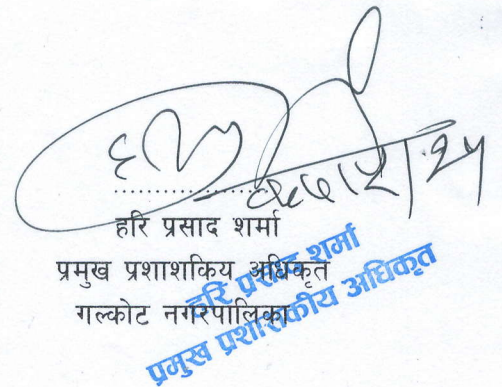 हरि प्रसाद शर्मा
प्रमुख प्रशाशकिय अधिकृत
गल्कोट नगरपालिका
हरि प्रसाद शर्मा
प्रमुख प्रशासकीय अधिकृत